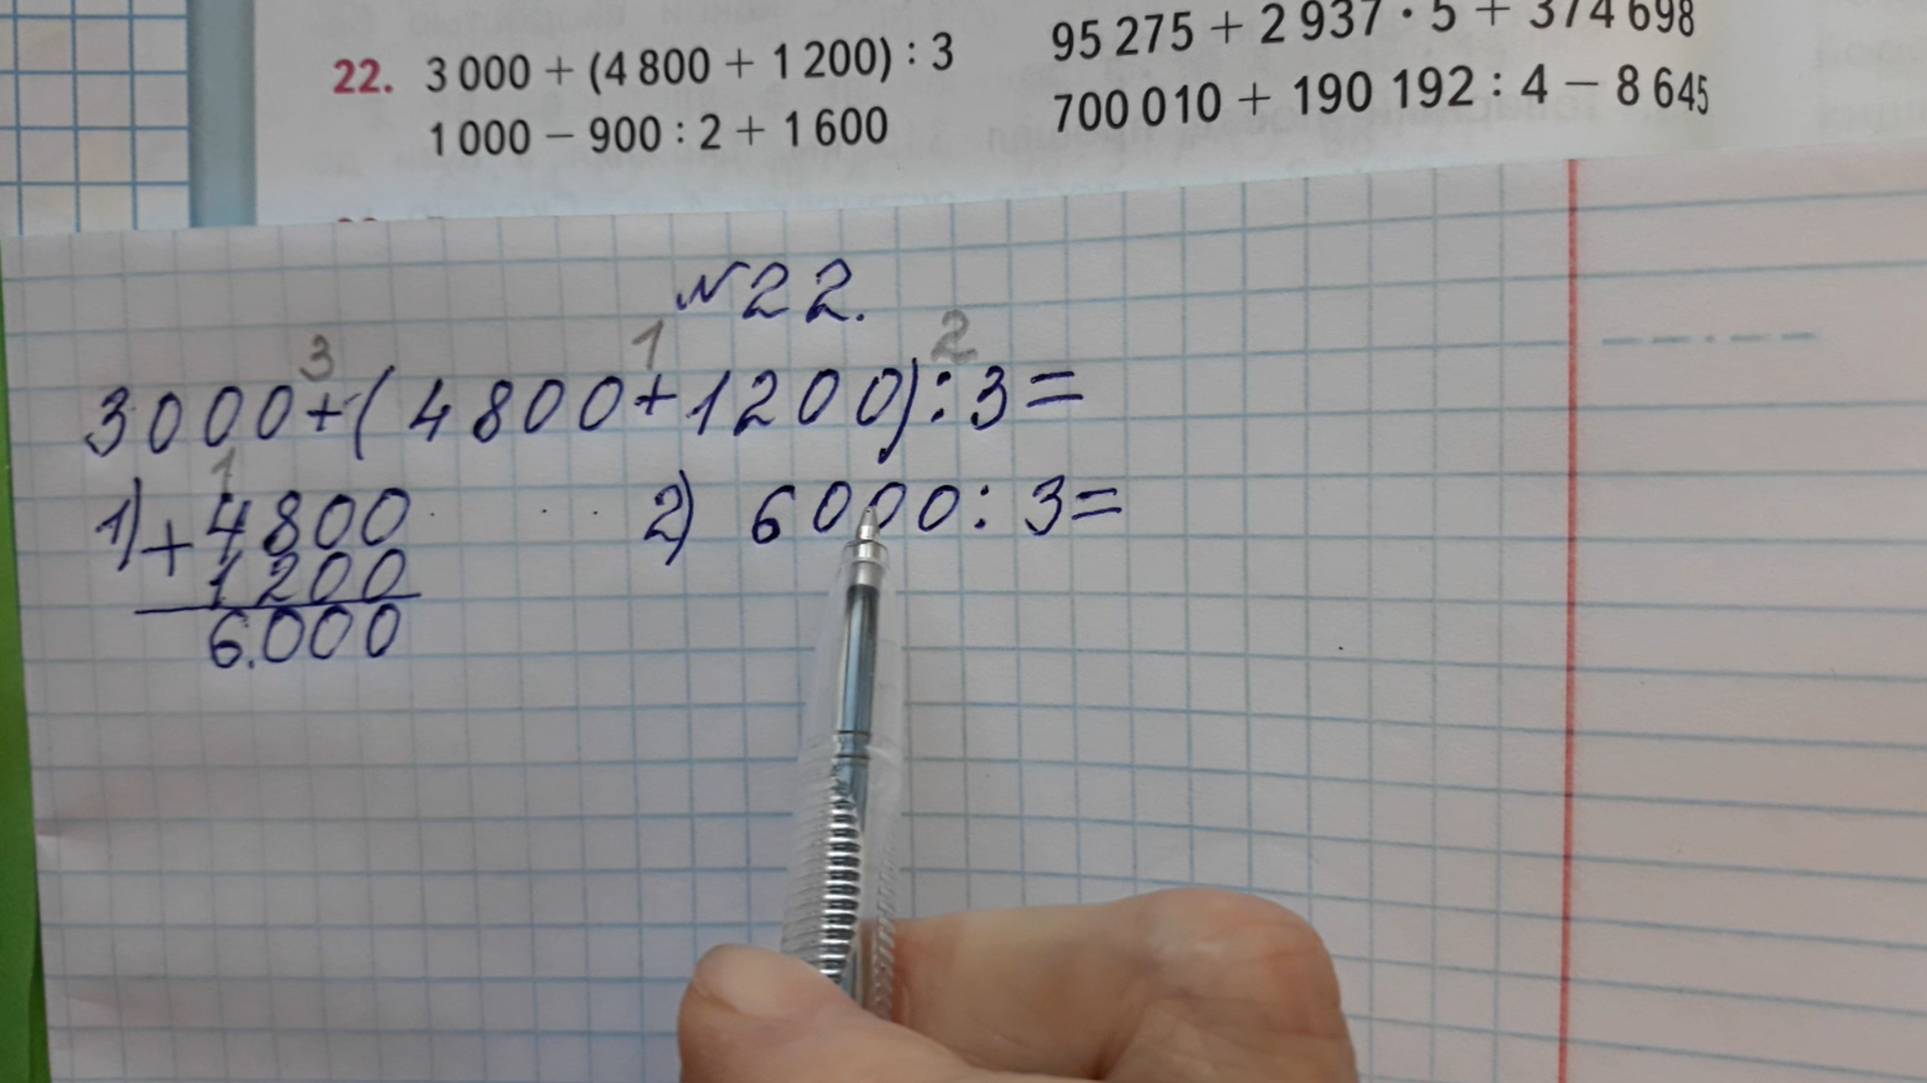 22. 3 000 + (4 800 + 1 200) : 3
1 000 − 900 : 2 + 1 600
95 275 + 2 937 · 5 + 374 698
700 010 + 190 192 : 4 − 8 645
№22.
3 1 2
3000+(4800+1200):3=
1
1) +4800
1200
6.000
2) 6000:3=